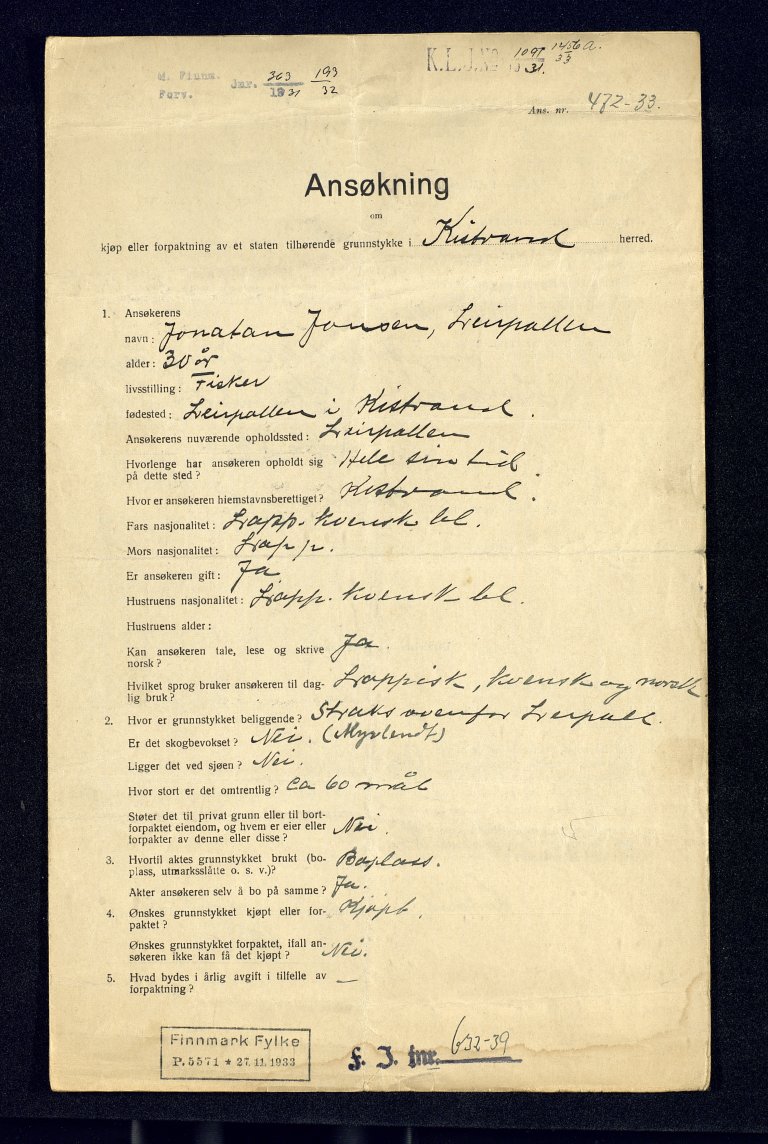 K. L. J. No 1091/31. 1456a./33
M. Finnm. Forv. Jnr. 303/1931 193/32
Ans. nr. 472-33.
Ansøkning
om
kjøp eller forpaktning av et staten tilhørende grunnstykke i Kistrand herred.
1. Ansøkerens
navn: Jonatan Jonsen, Leirpollen
alder: 30 år
livsstilling: Fisker
fødested: Leirpollen i Kistrand.
Ansøkerens nuværende opholdssted: Leirpollen
Hvorlenge har ansøkeren opholdt sig
på dette sted? Hele sin tid
Hvor er ansøkeren hiemstavnsberettiget? Kistrand.
Fars nasjonalitet: Lapp. kvensk bl.
Mors nasjonalitet: Lapp.
Er ansøkeren gift: Ja
Hustruens nasjonalitet: Lapp. kvensk bl.
Hustruens alder:
Kan ansøkeren tale, lese og skrive
norsk? Ja.
Hvilket sprog bruker ansøkeren til dag-
lig bruk? Lappisk, kvensk og norsk.
2. Hvor er grunnstykket beliggende? Straks ovenfor Leirpoll.
Er det skogbevokset? Nei. (Myrlendt)
Ligger det ved sjøen? Nei.
Hvor stort er det omtrentlig? ca 60 mål
Støter det til privat grunn eller til bort-
forpaktet eiendom, og hvem er eier eller
forpakter av denne eller disse? Nei.
3. Hvortil aktes grunnstykket brukt (bo-
plass, utmarksslåtte o. s. v.)? Boplass.
Akter ansøkeren selv å bo på samme? Ja.
4. Ønskes grunnstykket kjøpt eller for-
paktet? Kjøpt.
Ønskes grunnstykket forpaktet, ifall an-
søkeren ikke kan få det kjøpt? Nei.
5. Hvad bydes i årlig avgift i tilfelle av
forpaktning? —
Finnmark Fylke
P. 5571 * 27.11.1933
f. J. Jnr. 632-39